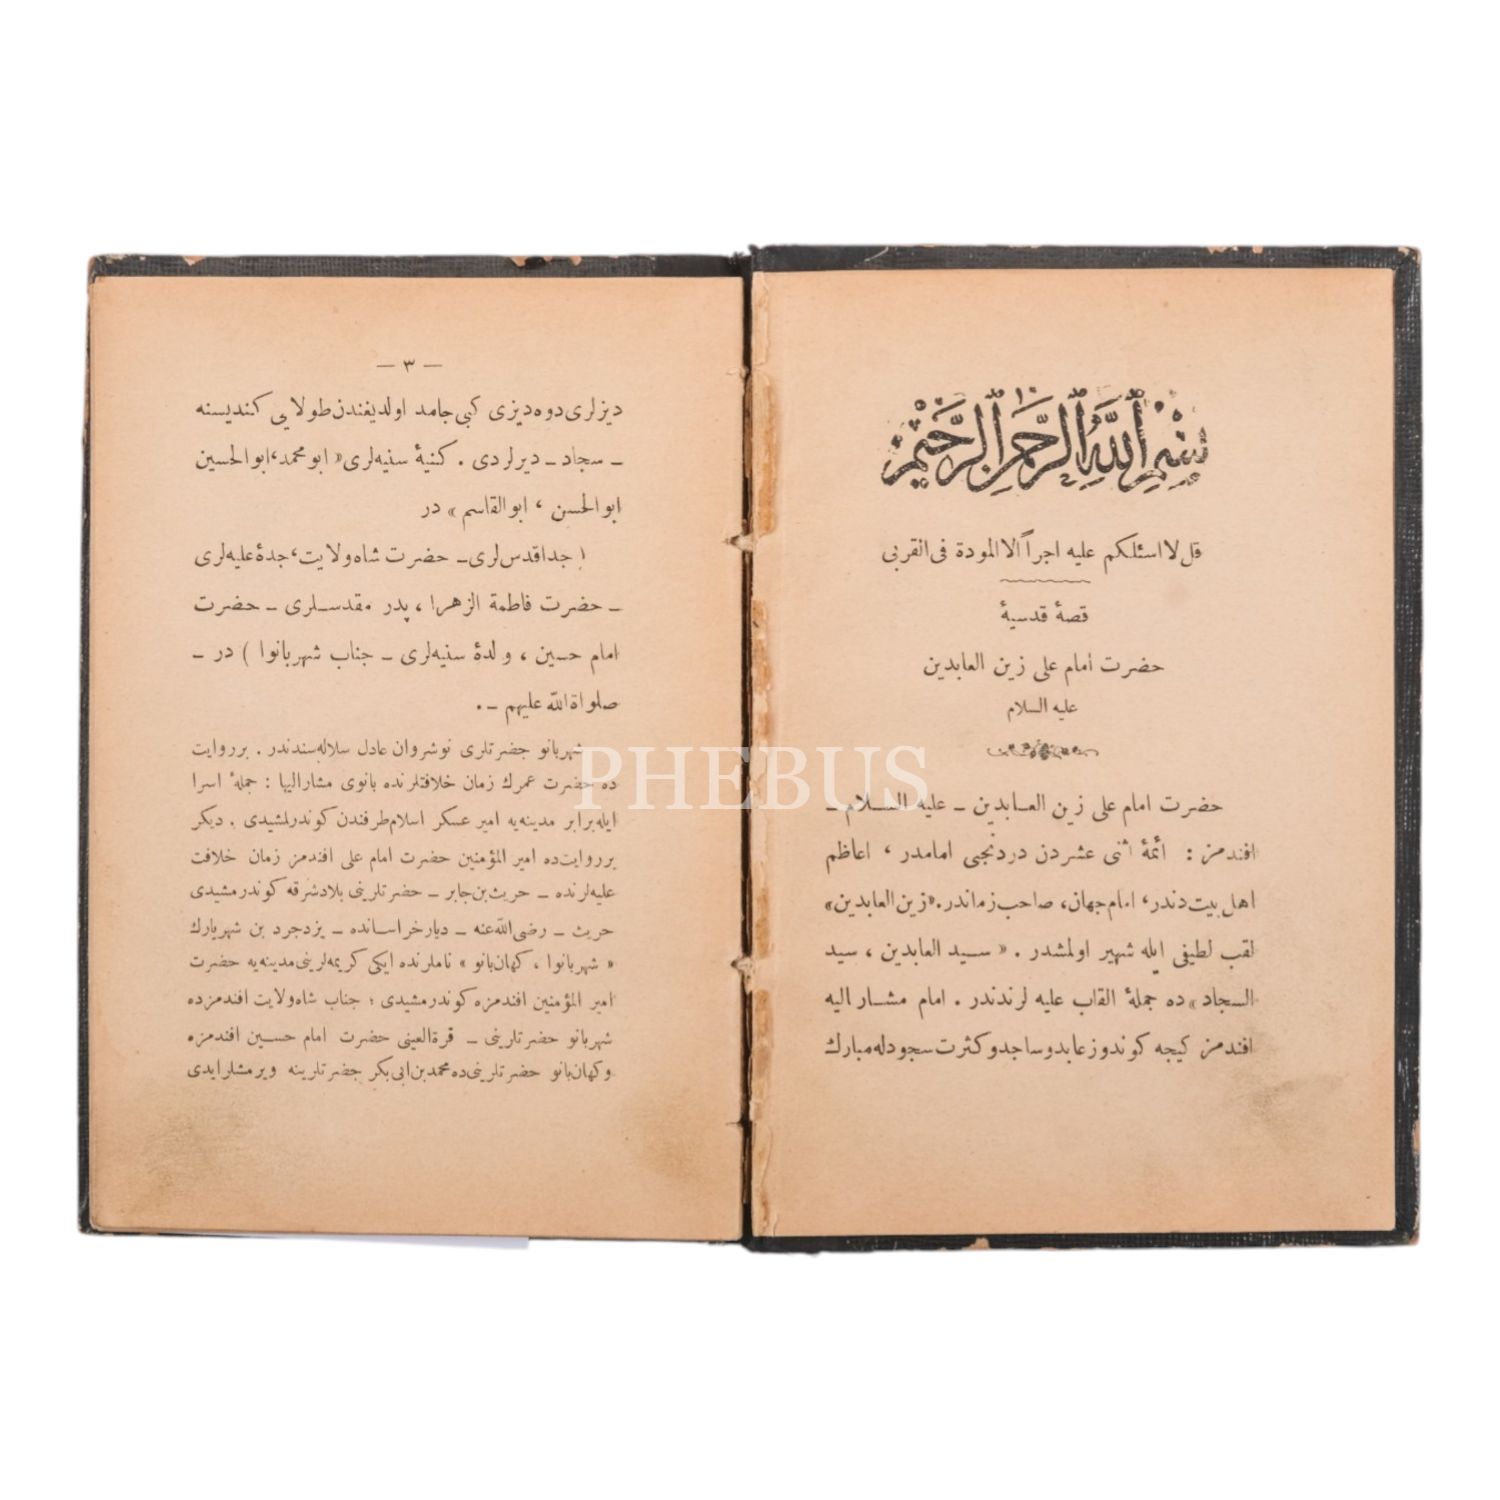 بسم الله الرحمن الرحيم
قل لا اسئلكم عليه اجراً الا المودة فى القربى
قصهٔ قدسيهٔ
حضرت امام على زين العابدين
عليه السلام
حضرت امام على زين العـابدين ــ عليه السـلام ــ
افندمز : ائمهٔ اثنى عشردن دردنجى امامدر ، اعاظم
اهل بيت دندر، امام جهان، صاحب زماندر. «زين العابدين»
لقب لطيفى ايله شهير اولمشدر . « سـيد العابدين ، سيد
السجاد » ده جملهٔ القاب عليه لرندندر . امام مشـار اليه
افندمز كيجه كوندوز عابد و ساجد و كثرت سجود له مبارك
— ٣ —
ديزلرى دوه ديزى كبى جامد اولديغندن طولايى كنديسنه
ــ سجاد ــ ديرلردى . كنيهٔ سنيه لرى « ابو محمد ، ابوالحسين
ابو الحسن ، ابو القاسم » در
( جد اقدس لرى ــ حضرت شاه ولايت ، جدهٔ عليه لرى
ــ حضرت فاطمة الزهرا ، پدر مقدسـلرى ــ حضرت
امام حسين ، والدهٔ سنيه لرى ــ جناب شهربانوا ) در ــ
صلواة الله عليهم ــ .
شهربانو حضرتلرى نوشروان عادل سلاله سندندر . بر روايت
ده حضرت عمرك زمان خلافتلرنده بانوى مشار اليها : جملهٔ اسرا
ايله برابر مدينه يه امير عسكر اسلام طرفندن كوندرلمشيدى . ديكر
بر روايت ده امير المؤمنين حضرت امام على افندمز زمان خلافت
عليه لرنده ــ حريث بن جابر ــ حضرتلرينى بلاد شرقه كوندرمشيدى
حريث ــ رضى الله عنه ــ ديار خراسانده ــ يزدجرد بن شهريارك
« شهربانوا ، كهان بانو » ناملرنده ايكى كريمه لرينى مدينه يه حضرت
امير المؤمنين افندمزه كوندرمشيدى ؛ جناب شاه ولايت افندمزده
شهربانو حضرتلرينى ــ قرة العينى حضرت امام حسـين افندمزه
وكهان بانو حضرتلرينى ده محمد بن ابى بكر حضرتلرينه ويرمشلرايدى
PHEBUS